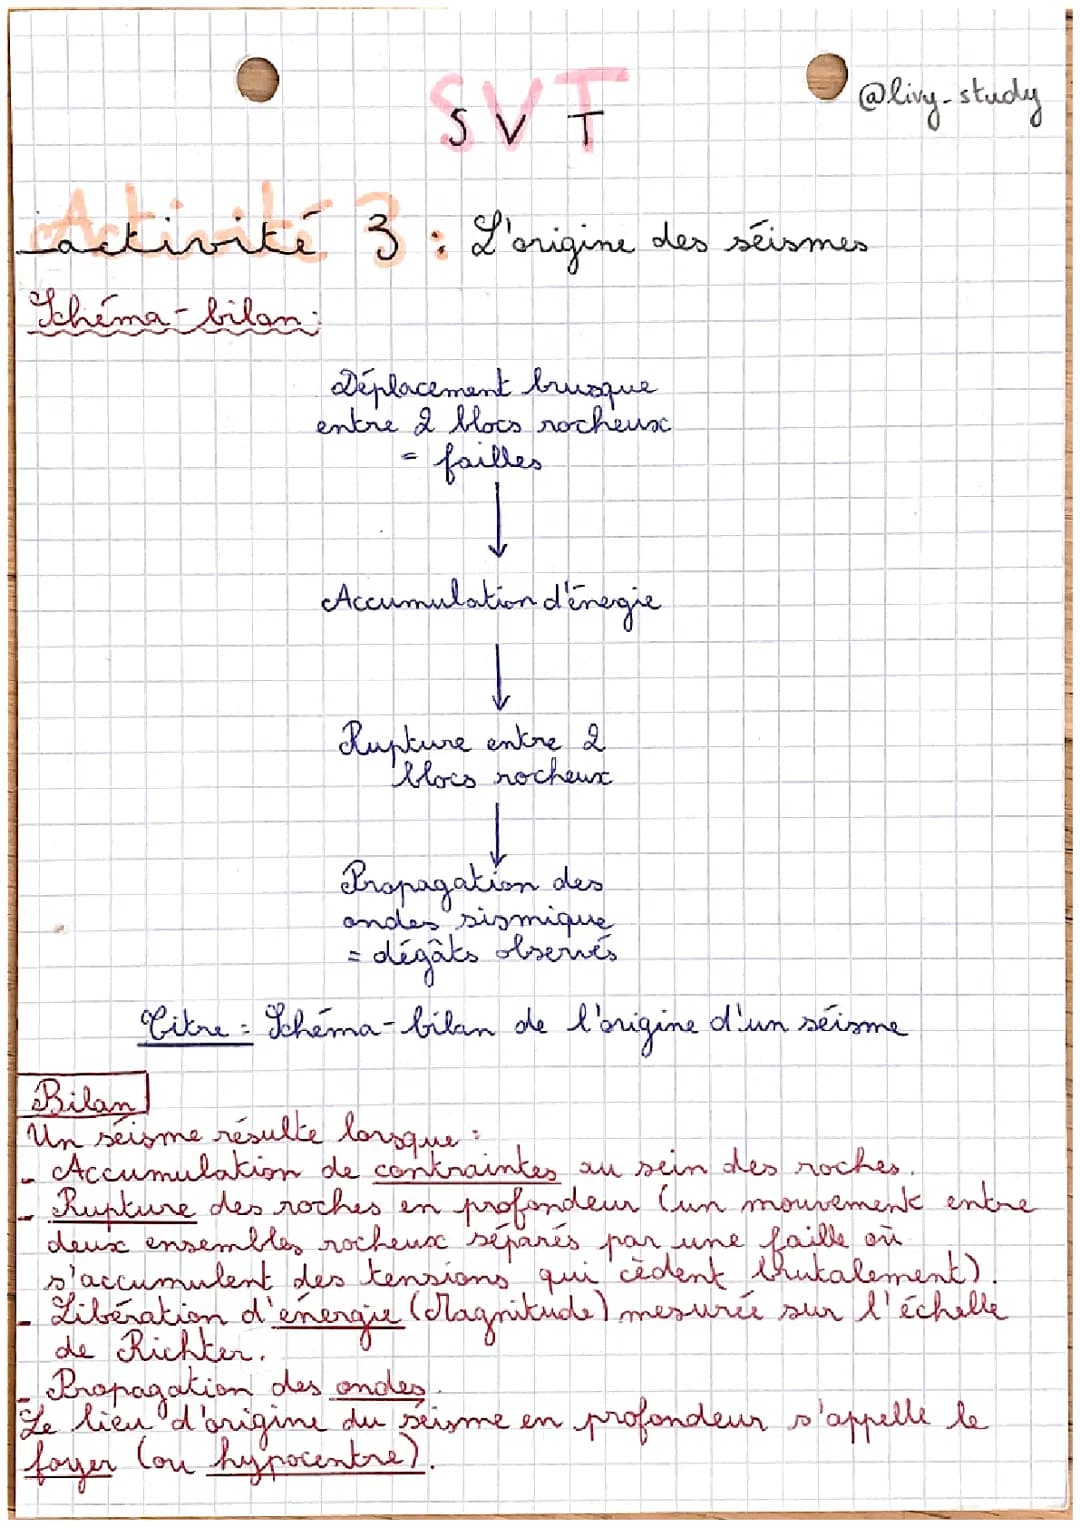 SVT
@livy-study
activité 3 : L'origine des séismes
Schéma-bilan :
Déplacement brusque
entre 2 blocs rocheux
= failles
Accumulation d'énergie
Rupture entre 2
blocs rocheux
Propagation des
ondes sismique
= dégâts observés
Titre = Schéma-bilan de l'origine d'un séisme
Bilan
Un séisme résulte lorsque :
- Accumulation de contraintes au sein des roches.
- Rupture des roches en profondeur (un mouvement entre
deux ensembles rocheux séparés par une faille où
s'accumulent des tensions qui cèdent brutalement).
- Libération d'énergie (Magnitude) mesurée sur l'échelle
de Richter.
- Propagation des ondes.
Le lieu d'origine du séisme en profondeur s'appelle le
foyer (ou hypocentre).